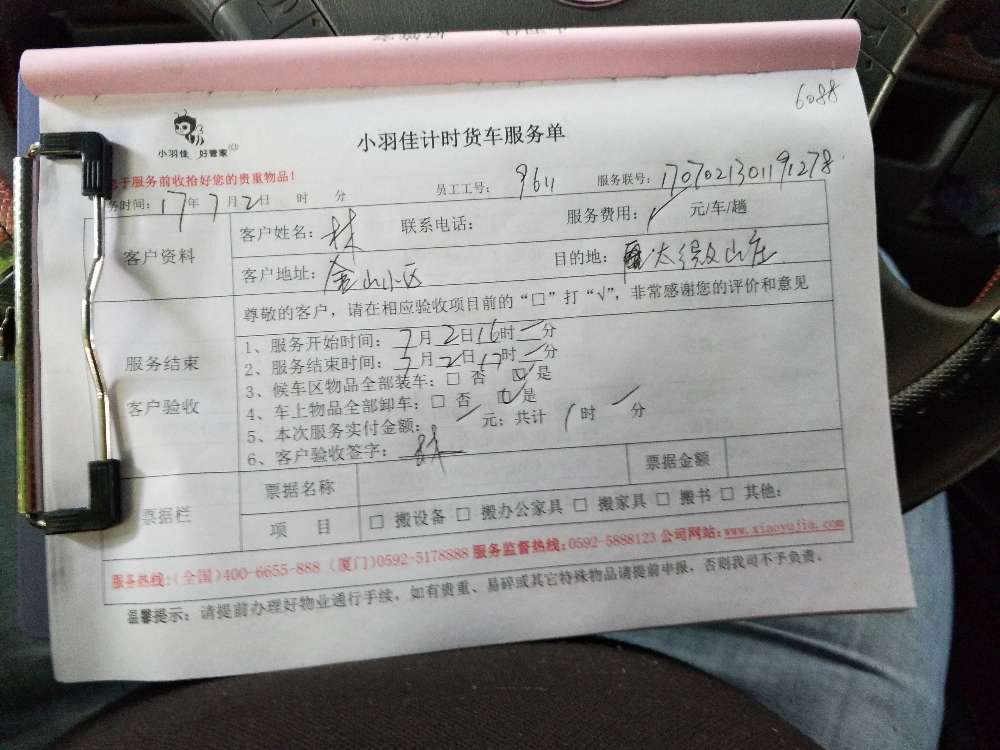 6088
小羽佳计时货车服务单
小羽佳 好管家
于服务前收拾好您的贵重物品!
务时间: 17年 7月2日 时 分 员工工号: 9611 服务联号: 1707021301191278
客户资料
客户姓名: 林 联系电话: 服务费用: / 元/车/趟
客户地址: 金山小区 目的地: 太微山庄
尊敬的客户，请在相应验收项目前的“□”打“√”，非常感谢您的评价和意见
服务结束
客户验收
1、服务开始时间: 7月2日16时一分
2、服务结束时间: 7月2日17时一分
3、候车区物品全部装车: □ 否 ☑ 是
4、车上物品全部卸车: □ 否 ☑ 是
5、本次服务实付金额: 一 元; 共计 1 时 一 分
6、客户验收签字: 林
票据栏
票据名称 票据金额
项 目 □ 搬设备 □ 搬办公家具 □ 搬家具 □ 搬书 □ 其他:
服务热线:(全国)400-6655-888 (厦门)0592-5178888 服务监督热线:0592-5888123 公司网站: www.xiaoyujia.com
温馨提示: 请提前办理好物业通行手续，如有贵重、易碎或其它特殊物品请提前申报，否则我司不予负责。